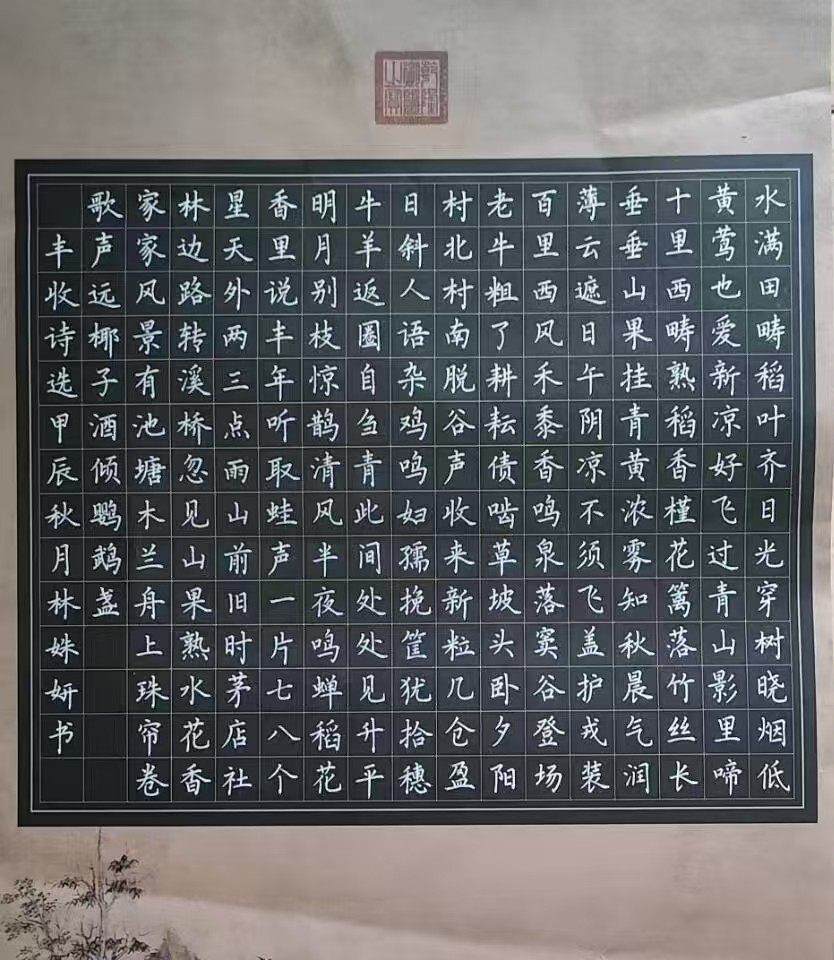 水满田畴稻叶齐日光穿树晓烟低
黄莺也爱新凉好飞过青山影里啼
十里西畴熟稻香槿花篱落竹丝长
垂垂山果挂青黄浓雾知秋晨气润
薄云遮日午阴凉不须飞盖护戎装
百里西风禾黍香鸣泉落窦谷登场
老牛粗了耕耘债啮草坡头卧夕阳
村北村南脱谷声收来新粒几仓盈
日斜人语杂鸡鸣妇孺挽筐犹拾穗
牛羊返圈自刍青此间处处见升平
明月别枝惊鹊清风半夜鸣蝉稻花
香里说丰年听取蛙声一片七八个
星天外两三点雨山前旧时茅店社
林边路转溪桥忽见山果熟水花香
家家风景有池塘木兰舟上珠帘卷
歌声远椰子酒倾鹦鹉盏
丰收诗选甲辰秋月林姝妍书